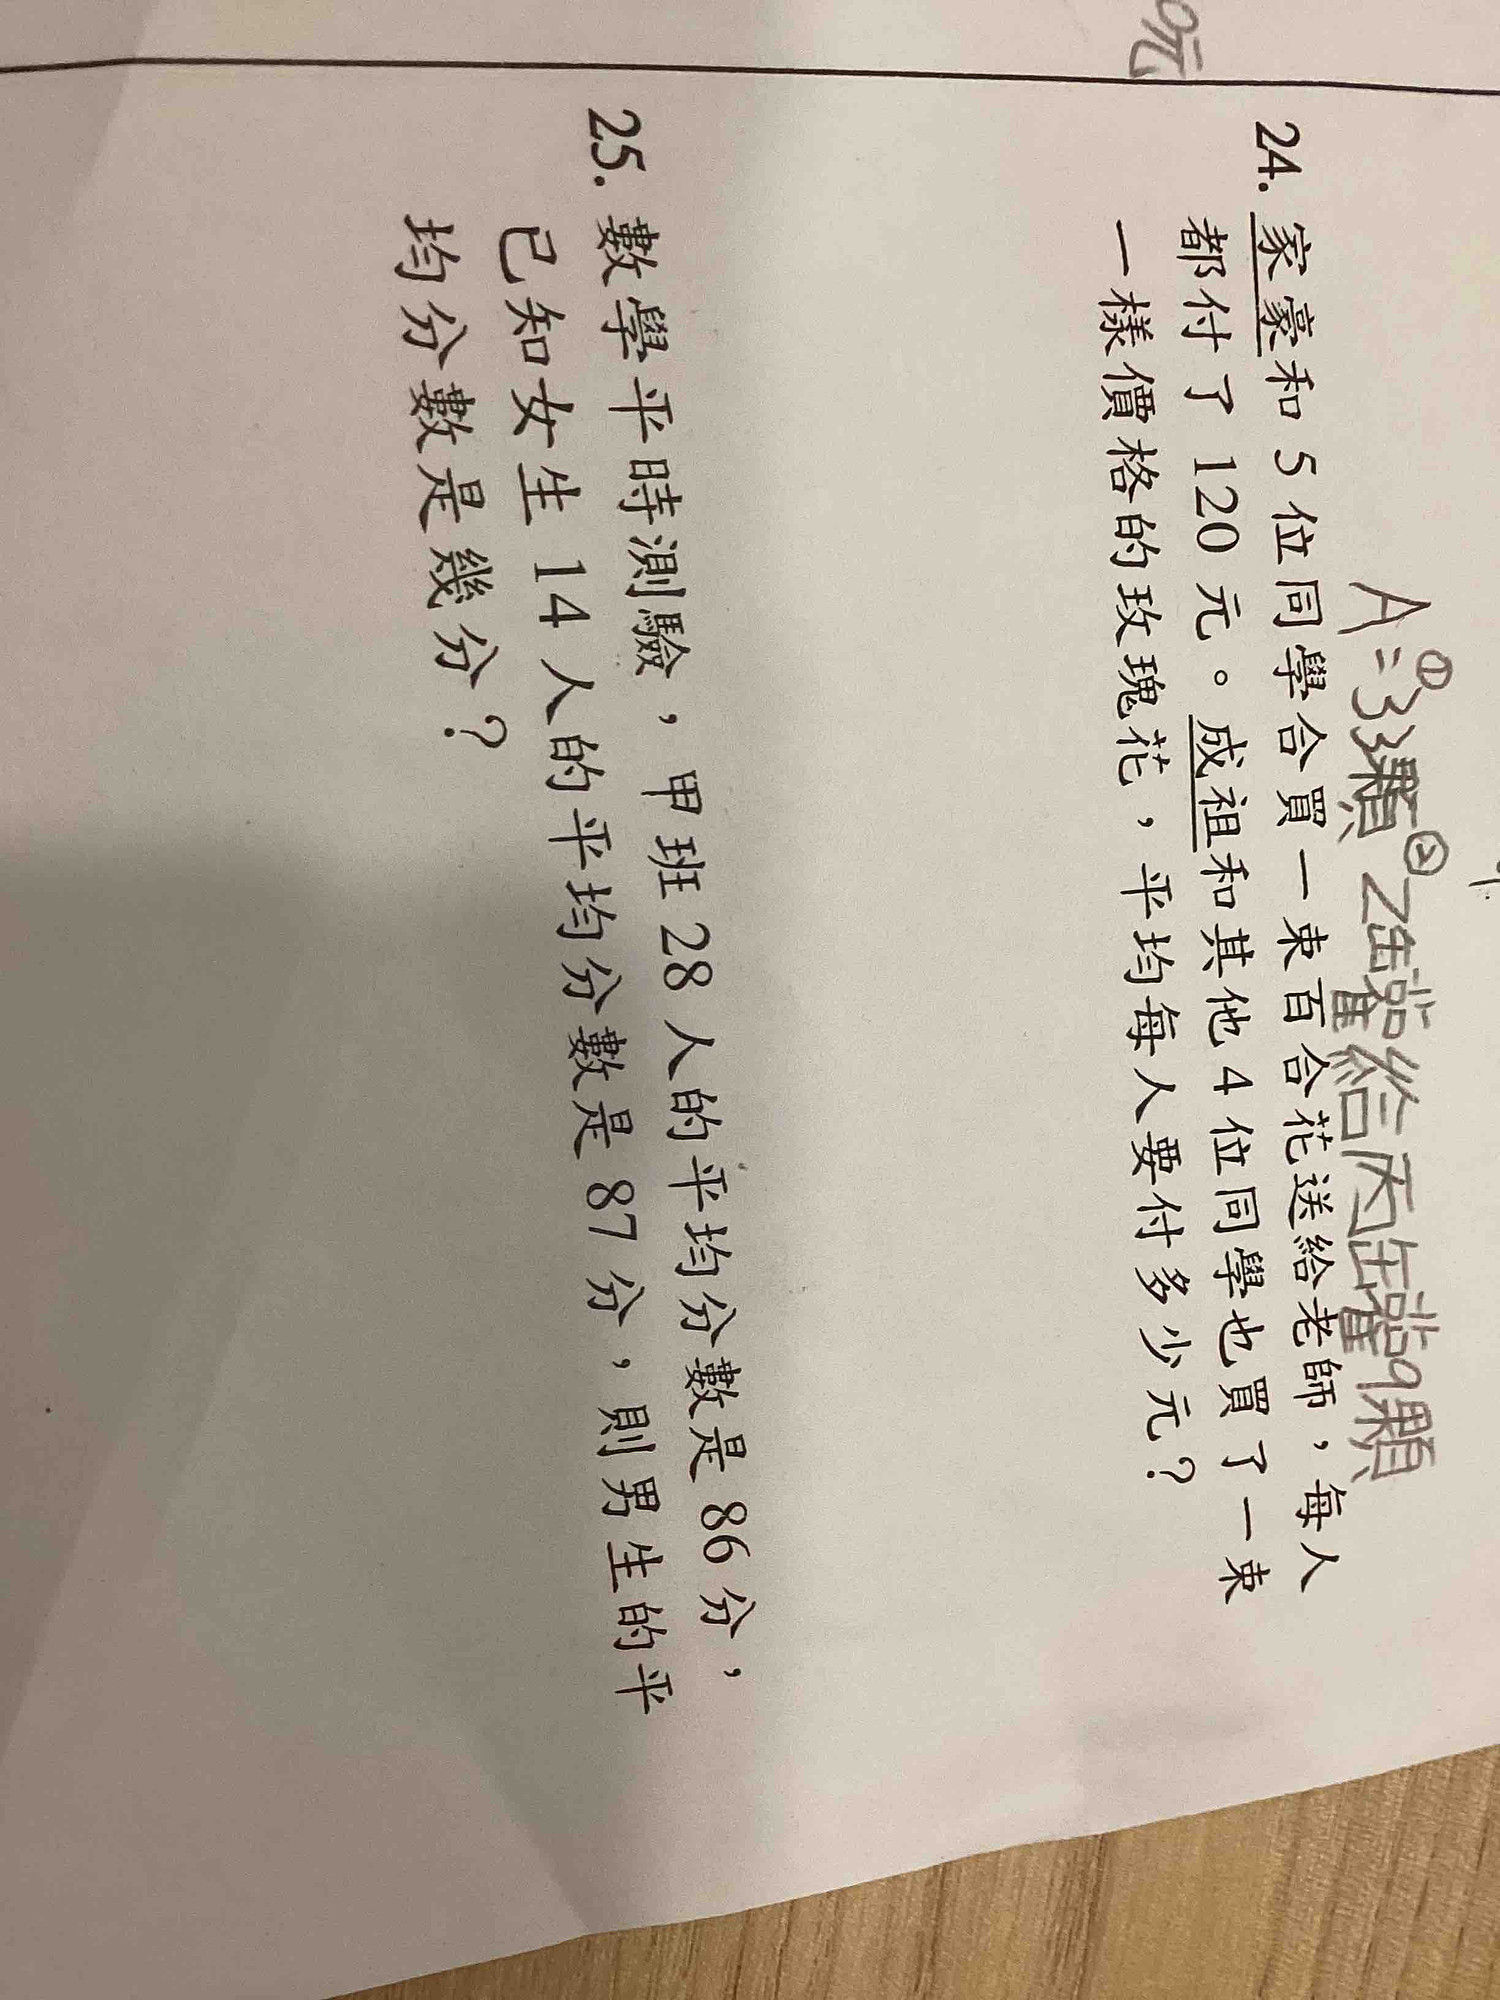 0元
A:①33顆②乙罐給丙罐9顆
24. 家豪和 5 位同學合買一束百合花送給老師，每人
都付了 120 元。成祖和其他 4 位同學也買了一束
一樣價格的玫瑰花，平均每人要付多少元？
25. 數學平時測驗，甲班 28 人的平均分數是 86 分，
已知女生 14 人的平均分數是 87 分，則男生的平
均分數是幾分？